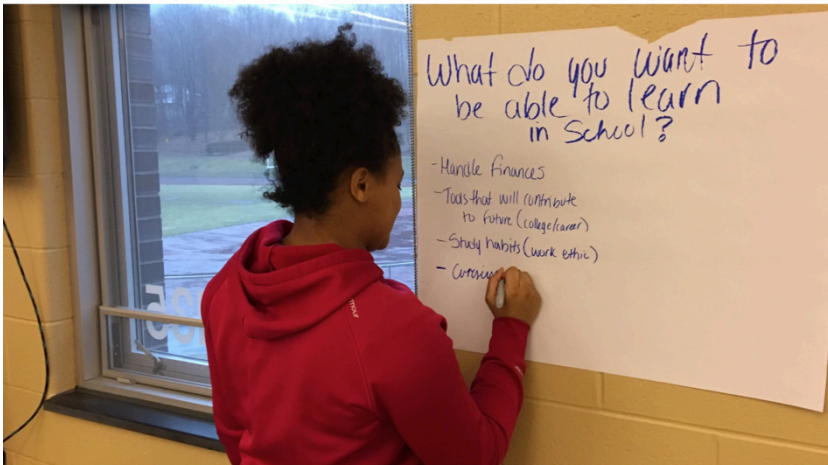 What do you want to
be able to learn
in School?
- Handle finances
- Tools that will contribute
to future (college/career)
- Study habits (work ethic)
-
35